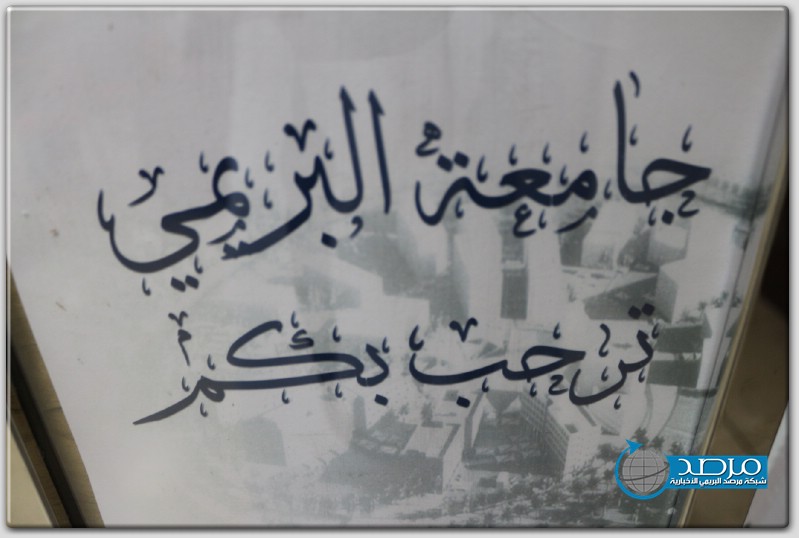 جامعة البريمي
ترحب بكم
مرصد
شبكة مرصد البريمي الاخبارية